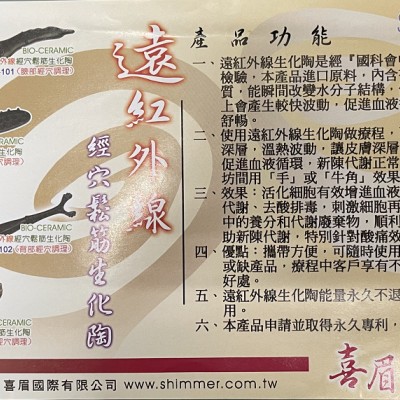 BIO-CERAMIC
外線經穴鬆筋生化陶
-101 (腿部經穴調理)
CERAMIC
生化陶
調理)
BIO-CERAMIC
線經穴鬆筋生化陶
-102 (背部經穴調理)
CERAMIC
化陶
調理)
遠紅外線
經穴鬆筋生化陶
產品功能
一、遠紅外線生化陶是經『國科會中
檢驗,本產品進口原料,內含
質,能瞬間改變水分子結構,
上會產生較快波動,促進血液
舒暢。
二、使用遠紅外線生化陶做療程,
深層,溫熱波動,讓皮膚深層
促進血液循環,新陳代謝正常
坊間用「手」或「牛角」效果
三、效果:活化細胞有效增進血液
代謝、去酸排毒,刺激細胞再
中的養分和代謝廢棄物,順利
助新陳代謝,特別針對酸痛效
四、優點:攜帶方便,可隨時使用
或缺產品,療程中客戶享有不
好處。
五、遠紅外線生化陶能量永久不退
用。
六、本產品申請並取得永久專利,
喜眉國際有限公司 www.shimmer.com.tw
喜眉